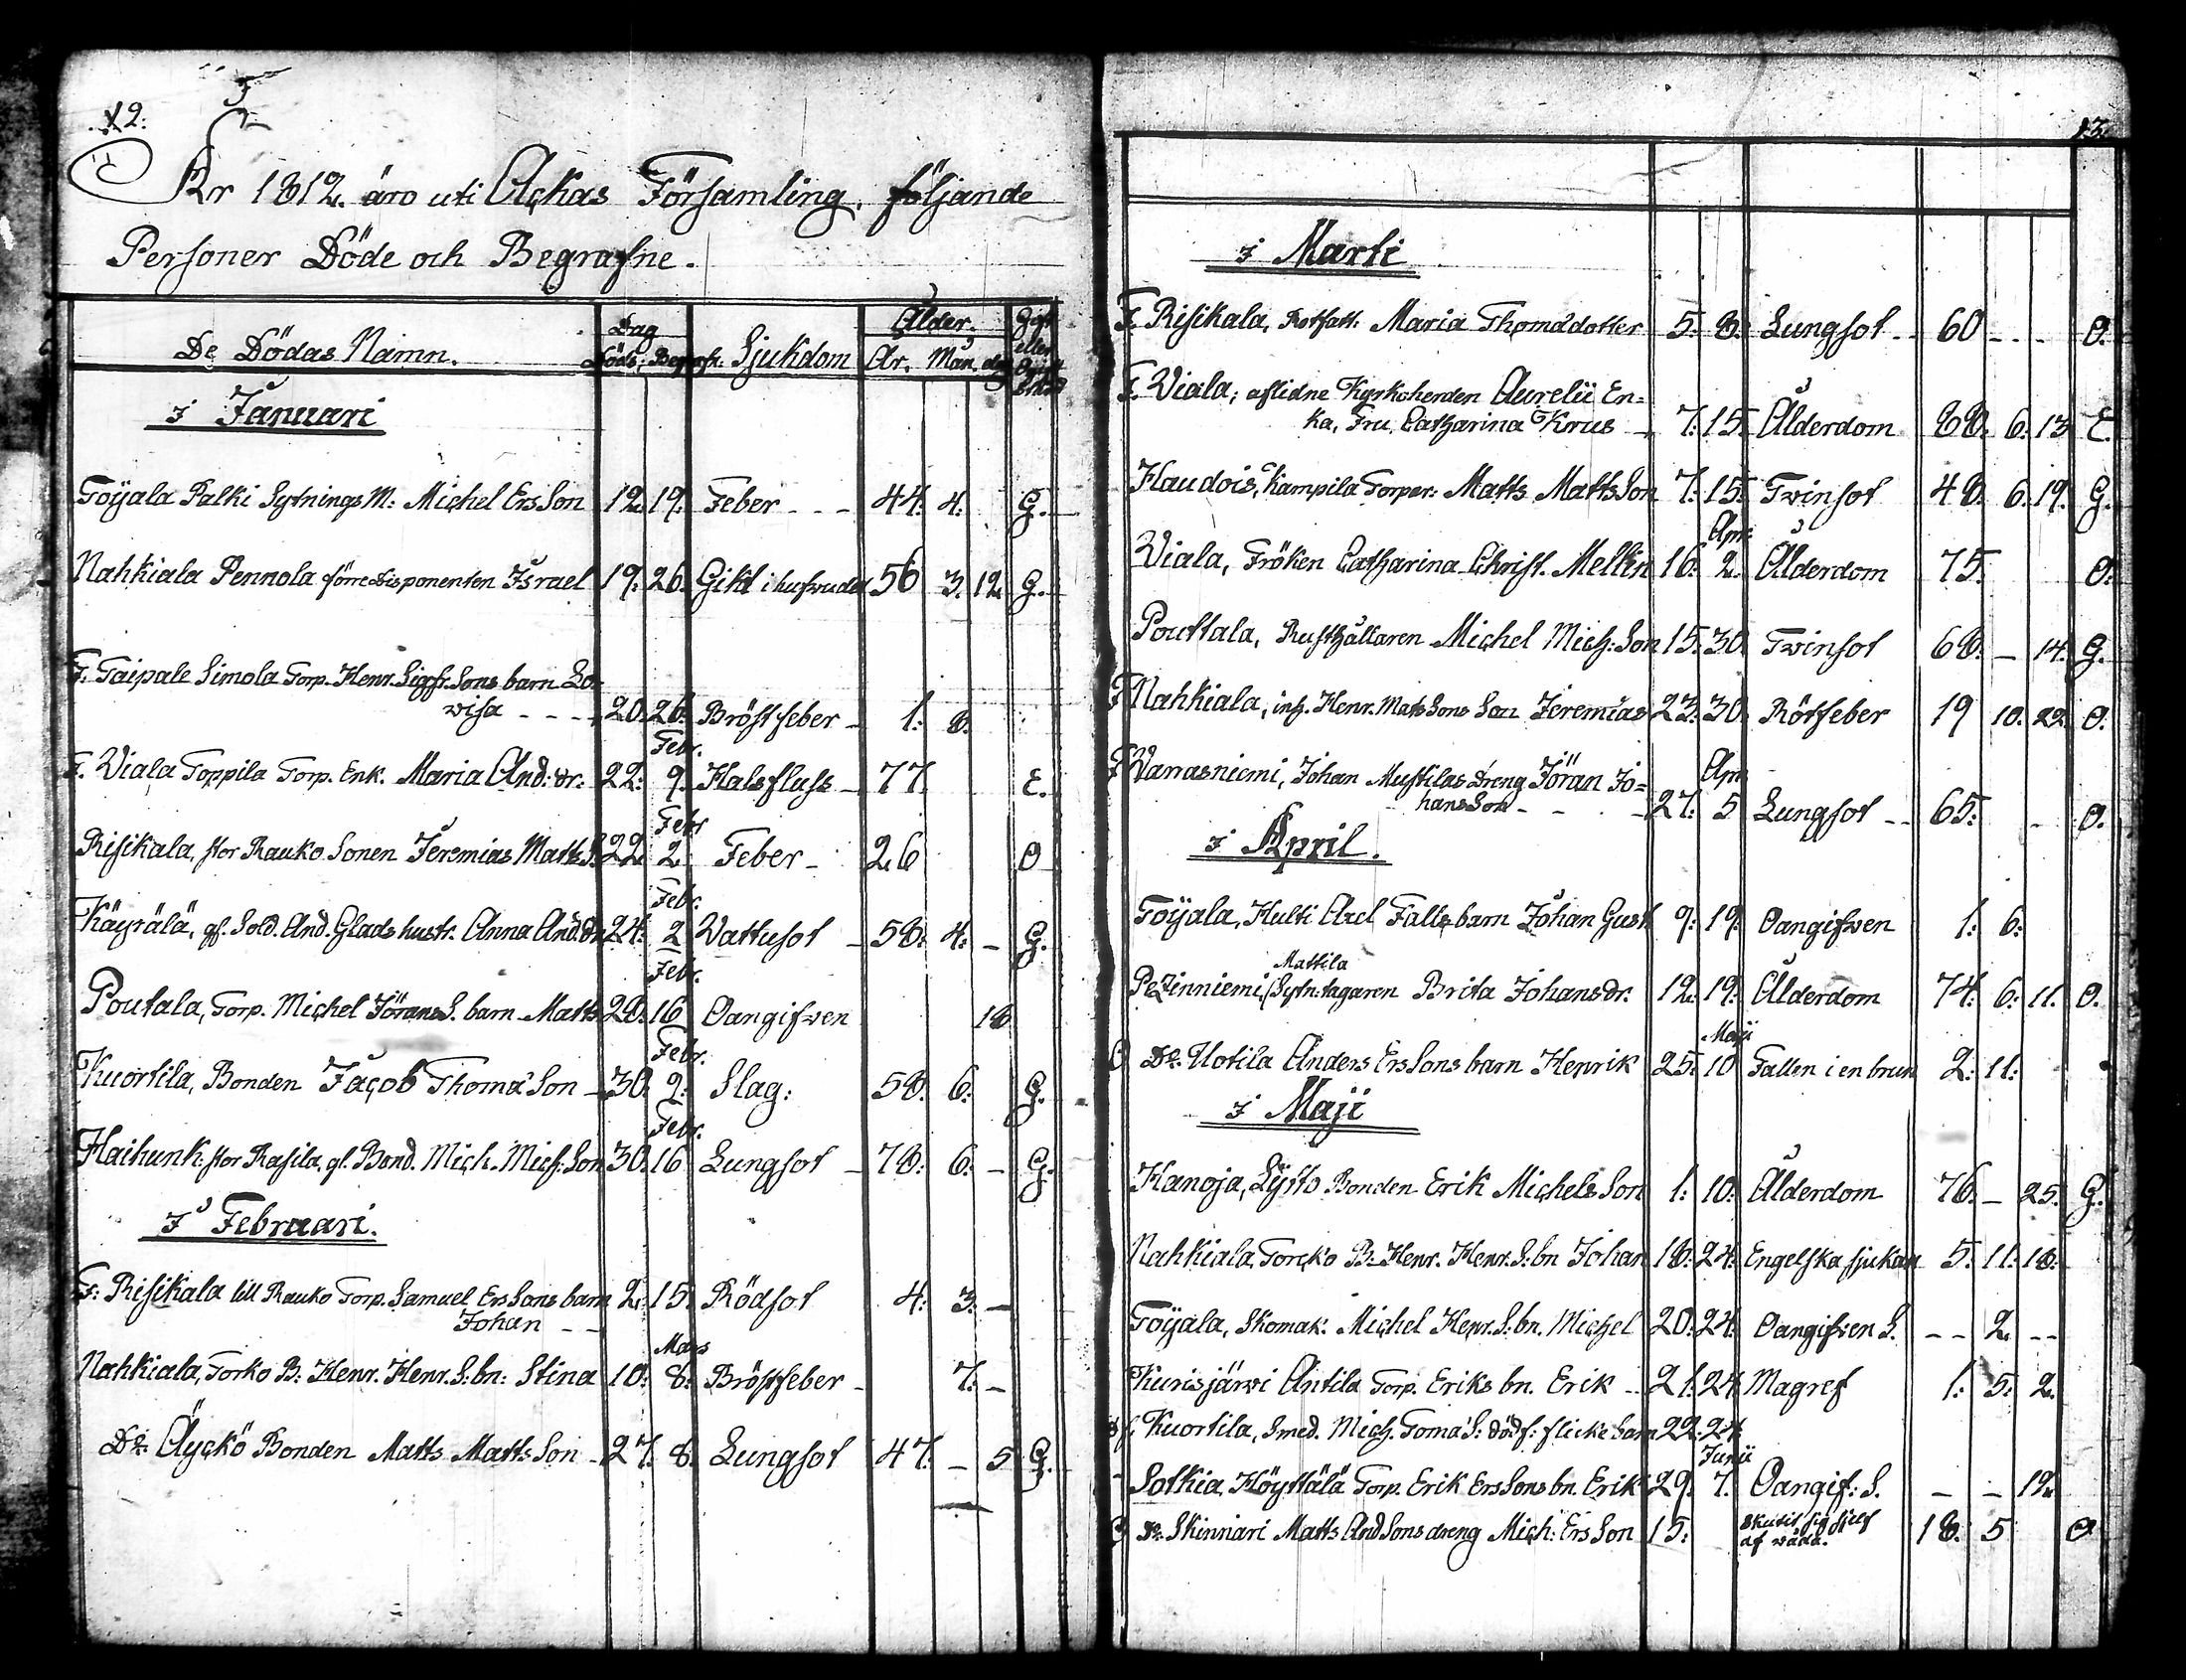 12:
År 1812. äro uti Ackas Församling, följande
Personer Döde och Begrafne.
De Dödas Namn. Dag Döds: Begrafn: Sjukdom Ålder. År. Mån. dag Gift eller Ogift
i Januari
Toÿala Palki Sytnings M: Michel ErsSon 12. 19. Feber - - - 44. 4. G.
Nahkiala Pennola förre disponenten Israel 19. 26. Gikt i hufvudet 56 3. 12. G.
F. Taipale Simola Torp. Henr. Sigfr. Sons barn Lo-
visa - - - - 20. 26. Bröstfeber - 1. 8.
Febr.
F. Viala Toppila Torp. Enk. Maria And: dr. 22: 9. Halsfluss - 77. E.
Febr
Risikala, stor Rauko Sonen Jeremias Matts S. 22. 2. Feber - 26 O
Febr.
Käyrälä, gf. Sold. And. Glads hustr. Anna And. dr 24. 2 Vattusot - 58. 4. - G.
Febr.
Poutala, Torp. Michel Jörans S. barn Matts 28. 16 Oangifven 18
Febr.
Kuortila, Bonden Jacob Thomæ Son - 30. 9. Slag: 58. 6. G.
Febr.
Haihunk. stor Rasila, gl. Bond. Mich. Mich: Son 30. 16 Lungsot - 78. 6. - G.
i Februari.
F: Risikala lill Rauko Torp. Samuel ErsSons barn 2. 15. Rödsot 4. 3. -
Johan - -
Mars
Nahkiala, Torko B: Henr. Henr. S: bn: Stina 10. 8. Bröstfeber - 7. -
Do: Äyckö Bonden Matts MattsSon - 27. 8. Lungsot 47. - 5 G.
13
i Marti
F. Risikala, Rotfatt. Maria Thomædotter 5. 8. Lungsot - - 60 - - - O.
F. Viala; aflidne Kyrkoherden Aurelii En-
ka, Fru Catharina Krus - 7. 15. Ålderdom 88. 6. 13 E.
Haudois, Kampila Torper: Matts MattsSon 7. 15. Tvinsot 48. 6. 19. G.
Apr.
Viala, Fröken Catharina Christ. Mellin 16. 2. Ålderdom 75. O.
Pouttala, Rusthållaren Michel Mich: Son 15. 30. Tvinsot 68. - 14. G.
F Nahkiala, inh. Henr. MatsSons Son Jeremias 23. 30. Rötfeber 19 10. 22. O.
Apr
F Varrasniemi, Johan Mustilas dreng Jöran Jo-
hansSon - - - 27. 5 Lungsot - - 65. - O.
i April.
Toÿala, Hulti Axel Falls barn Johan Gust 9. 19. Oangifven 1. 6.
Mattila
Pezinniemi, Sytn.tagaren Brita Johansdr. 12. 19. Ålderdom 74. 6. 11. O.
Maji
Do. Uotila Anders ErsSons barn Henrik 25. 10 Fallen i en brun 2. 11.
i Maji
Kanoja, Lÿsto Bonden Erik MichelsSon 1. 10. Ålderdom 76. - 25. G.
Nahkiala, Torcko B: Henr. Henr. S: bn Johan 18. 24. Engelska sjukan 5. 11. 18.
Toÿala, Skomak. Michel Henr. S: bn. Michel 20. 24. Oangifven S. - - 2. - -
Kurisjärvi Antila Torp. Eriks bn. Erik - 21. 24. Magref 1. 5. 2.
Kuortila, Smed. Mich. Tomæ S: dödf: flickebarn 22. 24.
Junii
Sotkia, Höyttälä Torp. Erik ErsSons bn. Erik 29. 7. Oangif: S. - - 12.
Do. Skinnari Matts AndSons dreng Mich: ErsSon 15. Skutit sig sjelf 18. 5 O
af våda.